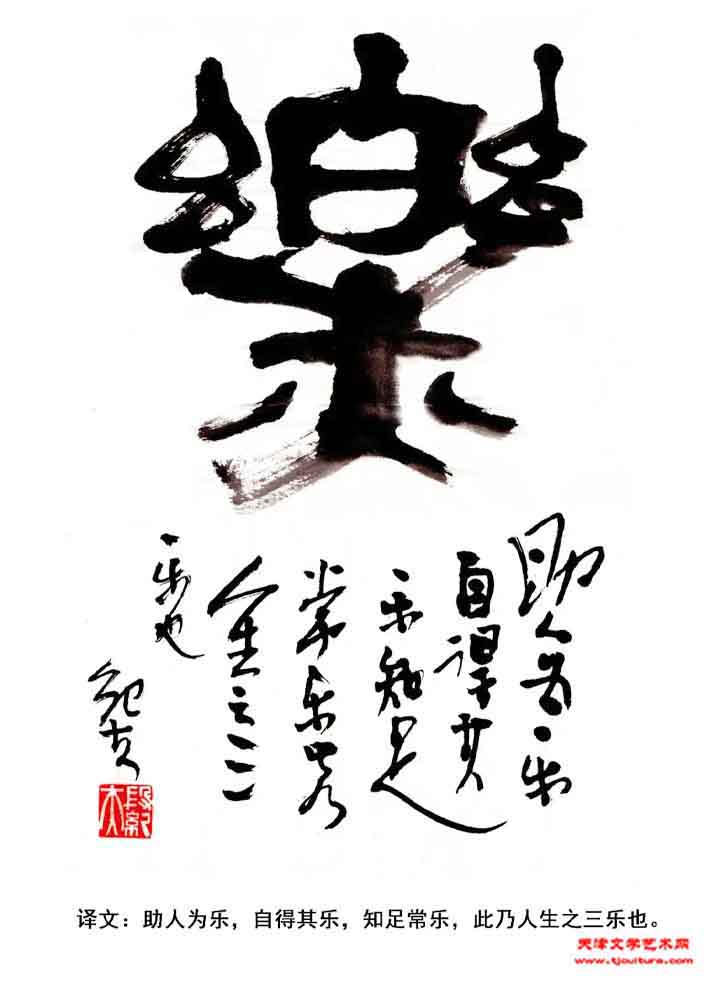 樂
助人为乐
自得其
乐知足
常乐此乃
人生之三
乐也
译文：助人为乐，自得其乐，知足常乐，此乃人生之三乐也。
天津文学艺术网
www.tjculture.com